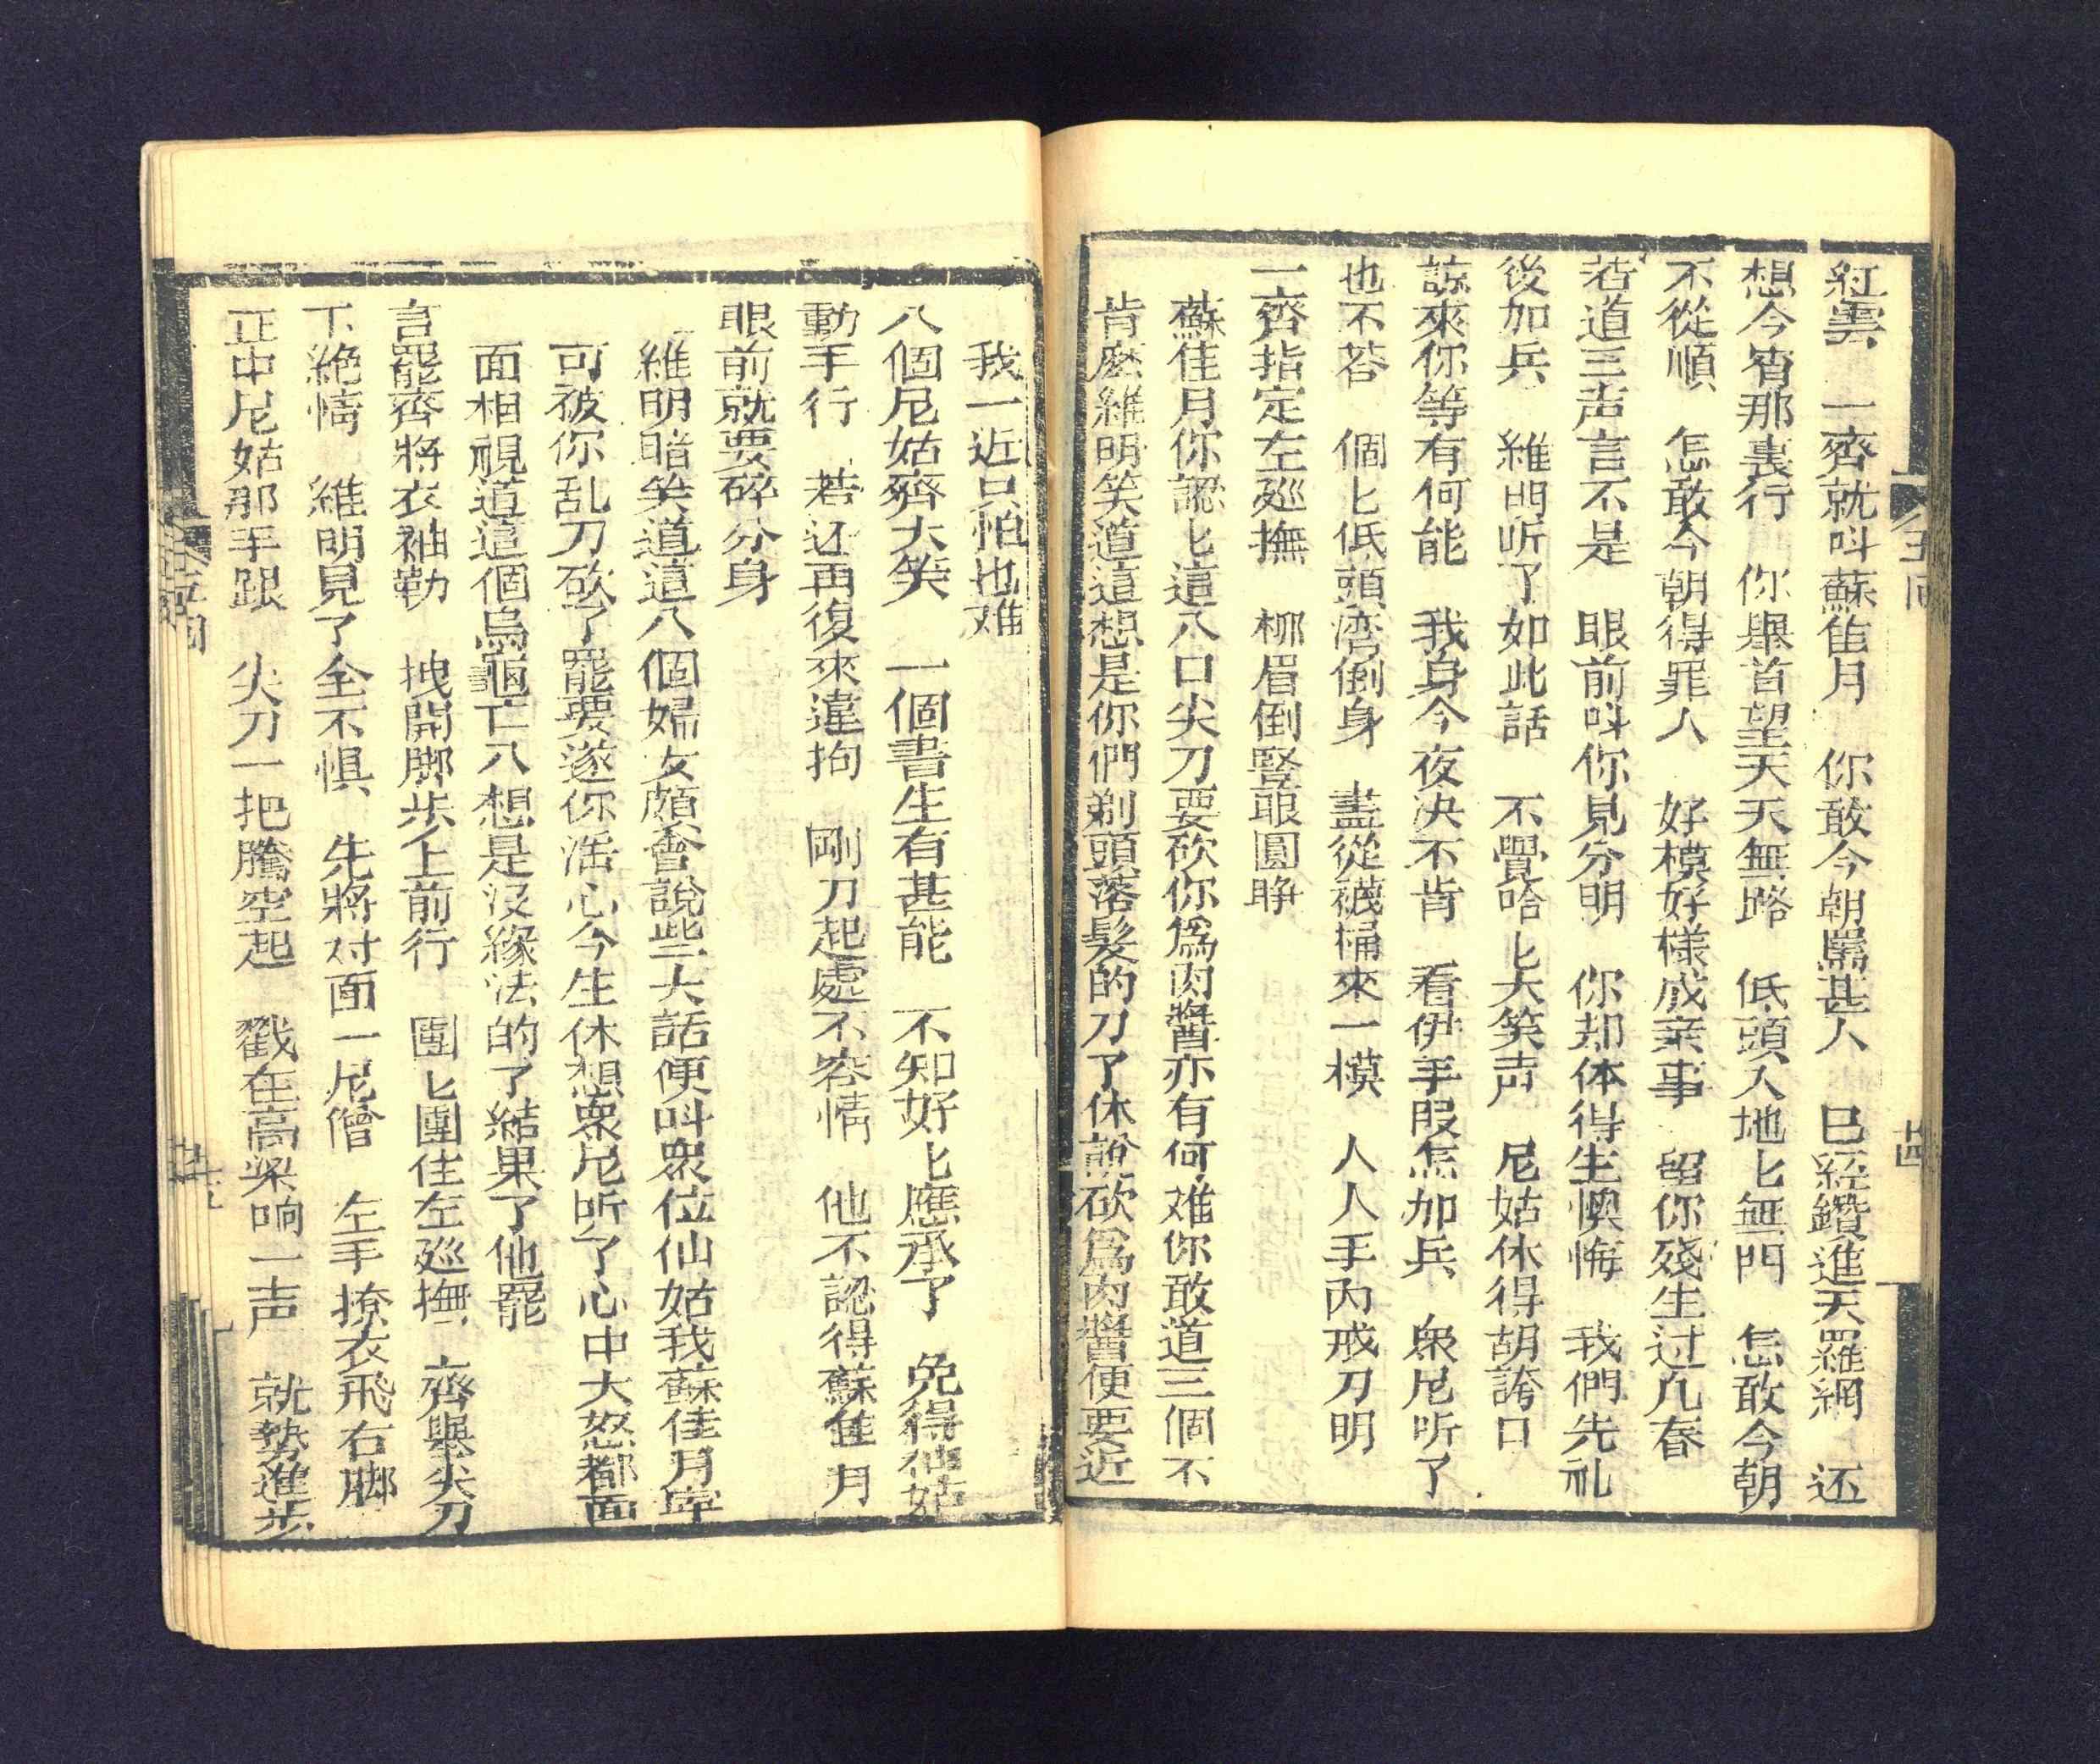 紅雲 一齊就呌蘇隹月 你敢今朝罵甚人 巳経鑽進天羅網 还
想今宵那裏行 你舉首望天天無路 低頭入地匕無門 怎敢今朝
不從順 怎敢今朝得罪人 好模好様成亲事 留你殘生过几春
若道三声言不是 眼前呌你見分明 你却体得生懊悔 我們先礼
後加兵 維明听了如此話 不覺哈匕大笑声 尼姑休得胡誇口
諒來你等有何能 我身今夜决不肯 看伊手叚怎加兵 衆尼听了
也不荅 個匕低頭湾倒身 盡從襪桶來一模 人人手内戒刀明
一齊指定左廵撫 柳眉倒竪眼圓睁
蘇佳月你認匕這八口尖刀要砍你爲肉醬亦有何难你敢道三個不
肯麽維明笑道這想是你們剃頭落髮的刀了休說砍爲肉醬便要近
我一近只怕也难
八個尼姑齊大笑 一個書生有甚能 不知好匕應承了 免得仙姑
動手行 若还再復來違拘 剛刀起處不容情 他不認得蘇隹月
眼前就要碎分身
維明暗笑道這八個婦女頗會說些大話便呌衆位仙姑我蘇佳月寕
可被你乱刀砍了罷要遂你淫心今生休想衆尼听了心中大怒都面
面相視道這個烏龜亡八想是没緣法的了結果了他罷
言罷齊將衣袖勒 拽開脚步上前行 團匕團住左廵撫 齊舉尖刀
下絶情 維明見了全不惧 先將对面一尼僧 左手撩衣飛右脚
正中尼姑那手跟 尖刀一把騰空起 戳在高梁响一声 就勢進步